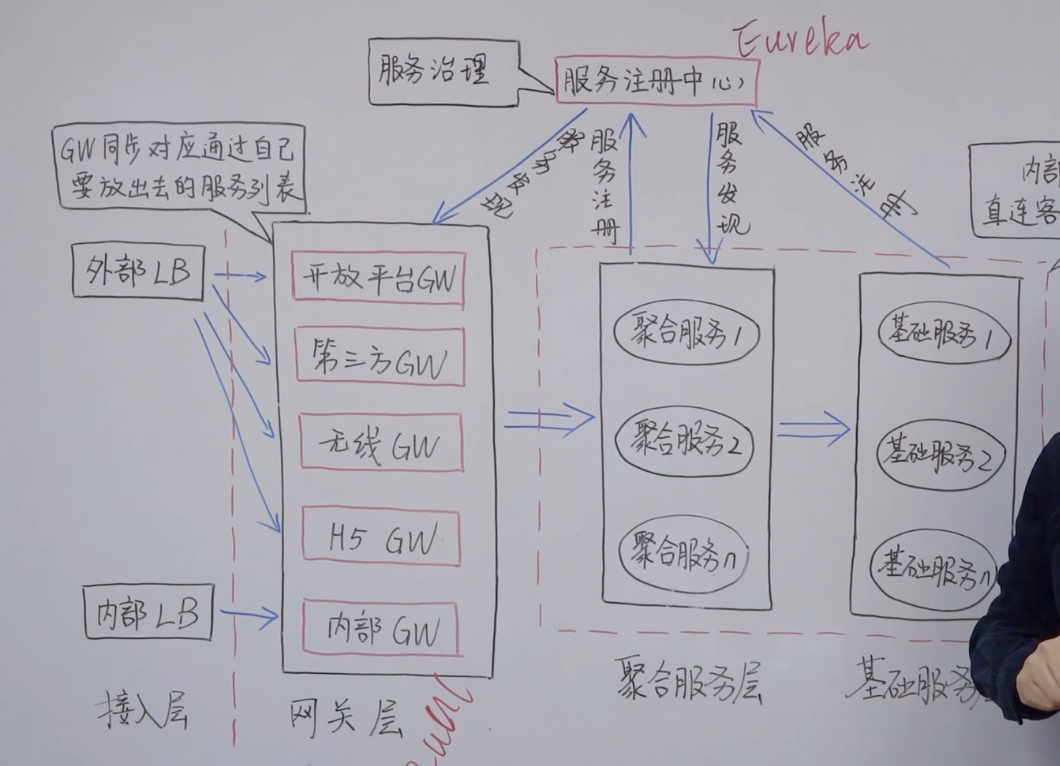 Eureka
服务治理
服务注册中心
GW同步对应通过自己
要放出去的服务列表
服务发现
服务注册
服务发现
服务注册
内部
直连客
外部LB
开放平台GW
第三方GW
无线GW
H5 GW
内部LB
内部GW
聚合服务1
聚合服务2
聚合服务n
基础服务1
基础服务2
基础服务n
接入层
网关层
聚合服务层
基础服务